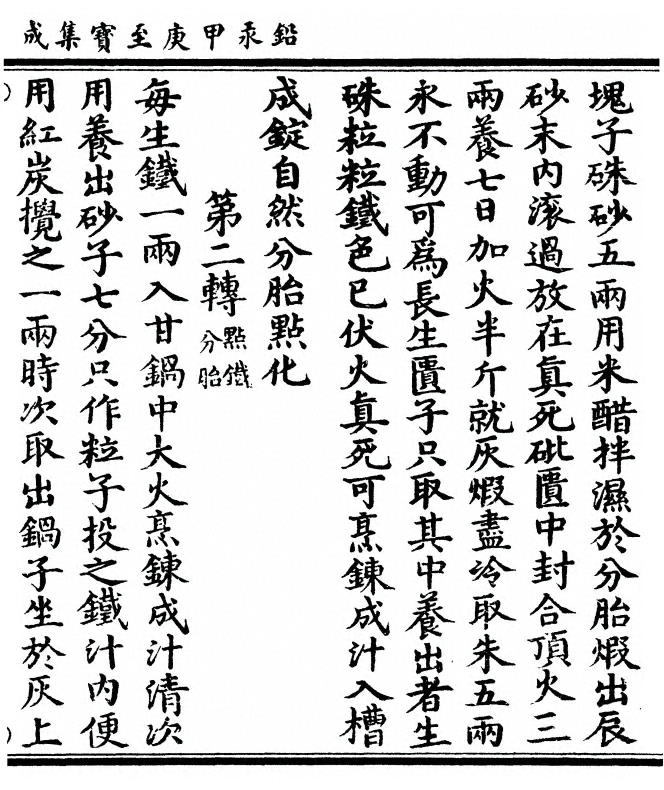 鉛汞甲庚至寶集成
塊子硃砂五兩用米醋拌濕於分胎煆出辰
砂末內滾過放在真死砒匱中封合頂火三
兩養七日加火半斤就灰煆盡冷取朱五兩
永不動可為長生匱子只取其中養出者生
硃粒粒鐵色已伏火真死可烹鍊成汁入槽
成錠自然分胎點化
第二轉點鐵分胎
每生鐵一兩入甘鍋中大火烹鍊成汁清次
用養出砂子七分只作粒子投之鐵汁內便
用紅炭攪之一兩時次取出鍋子坐於灰上